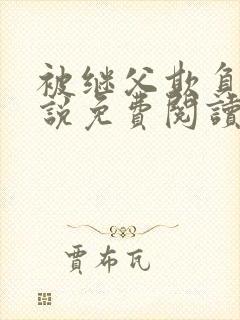 被继父欺负
說免費閱讀
贾布瓦